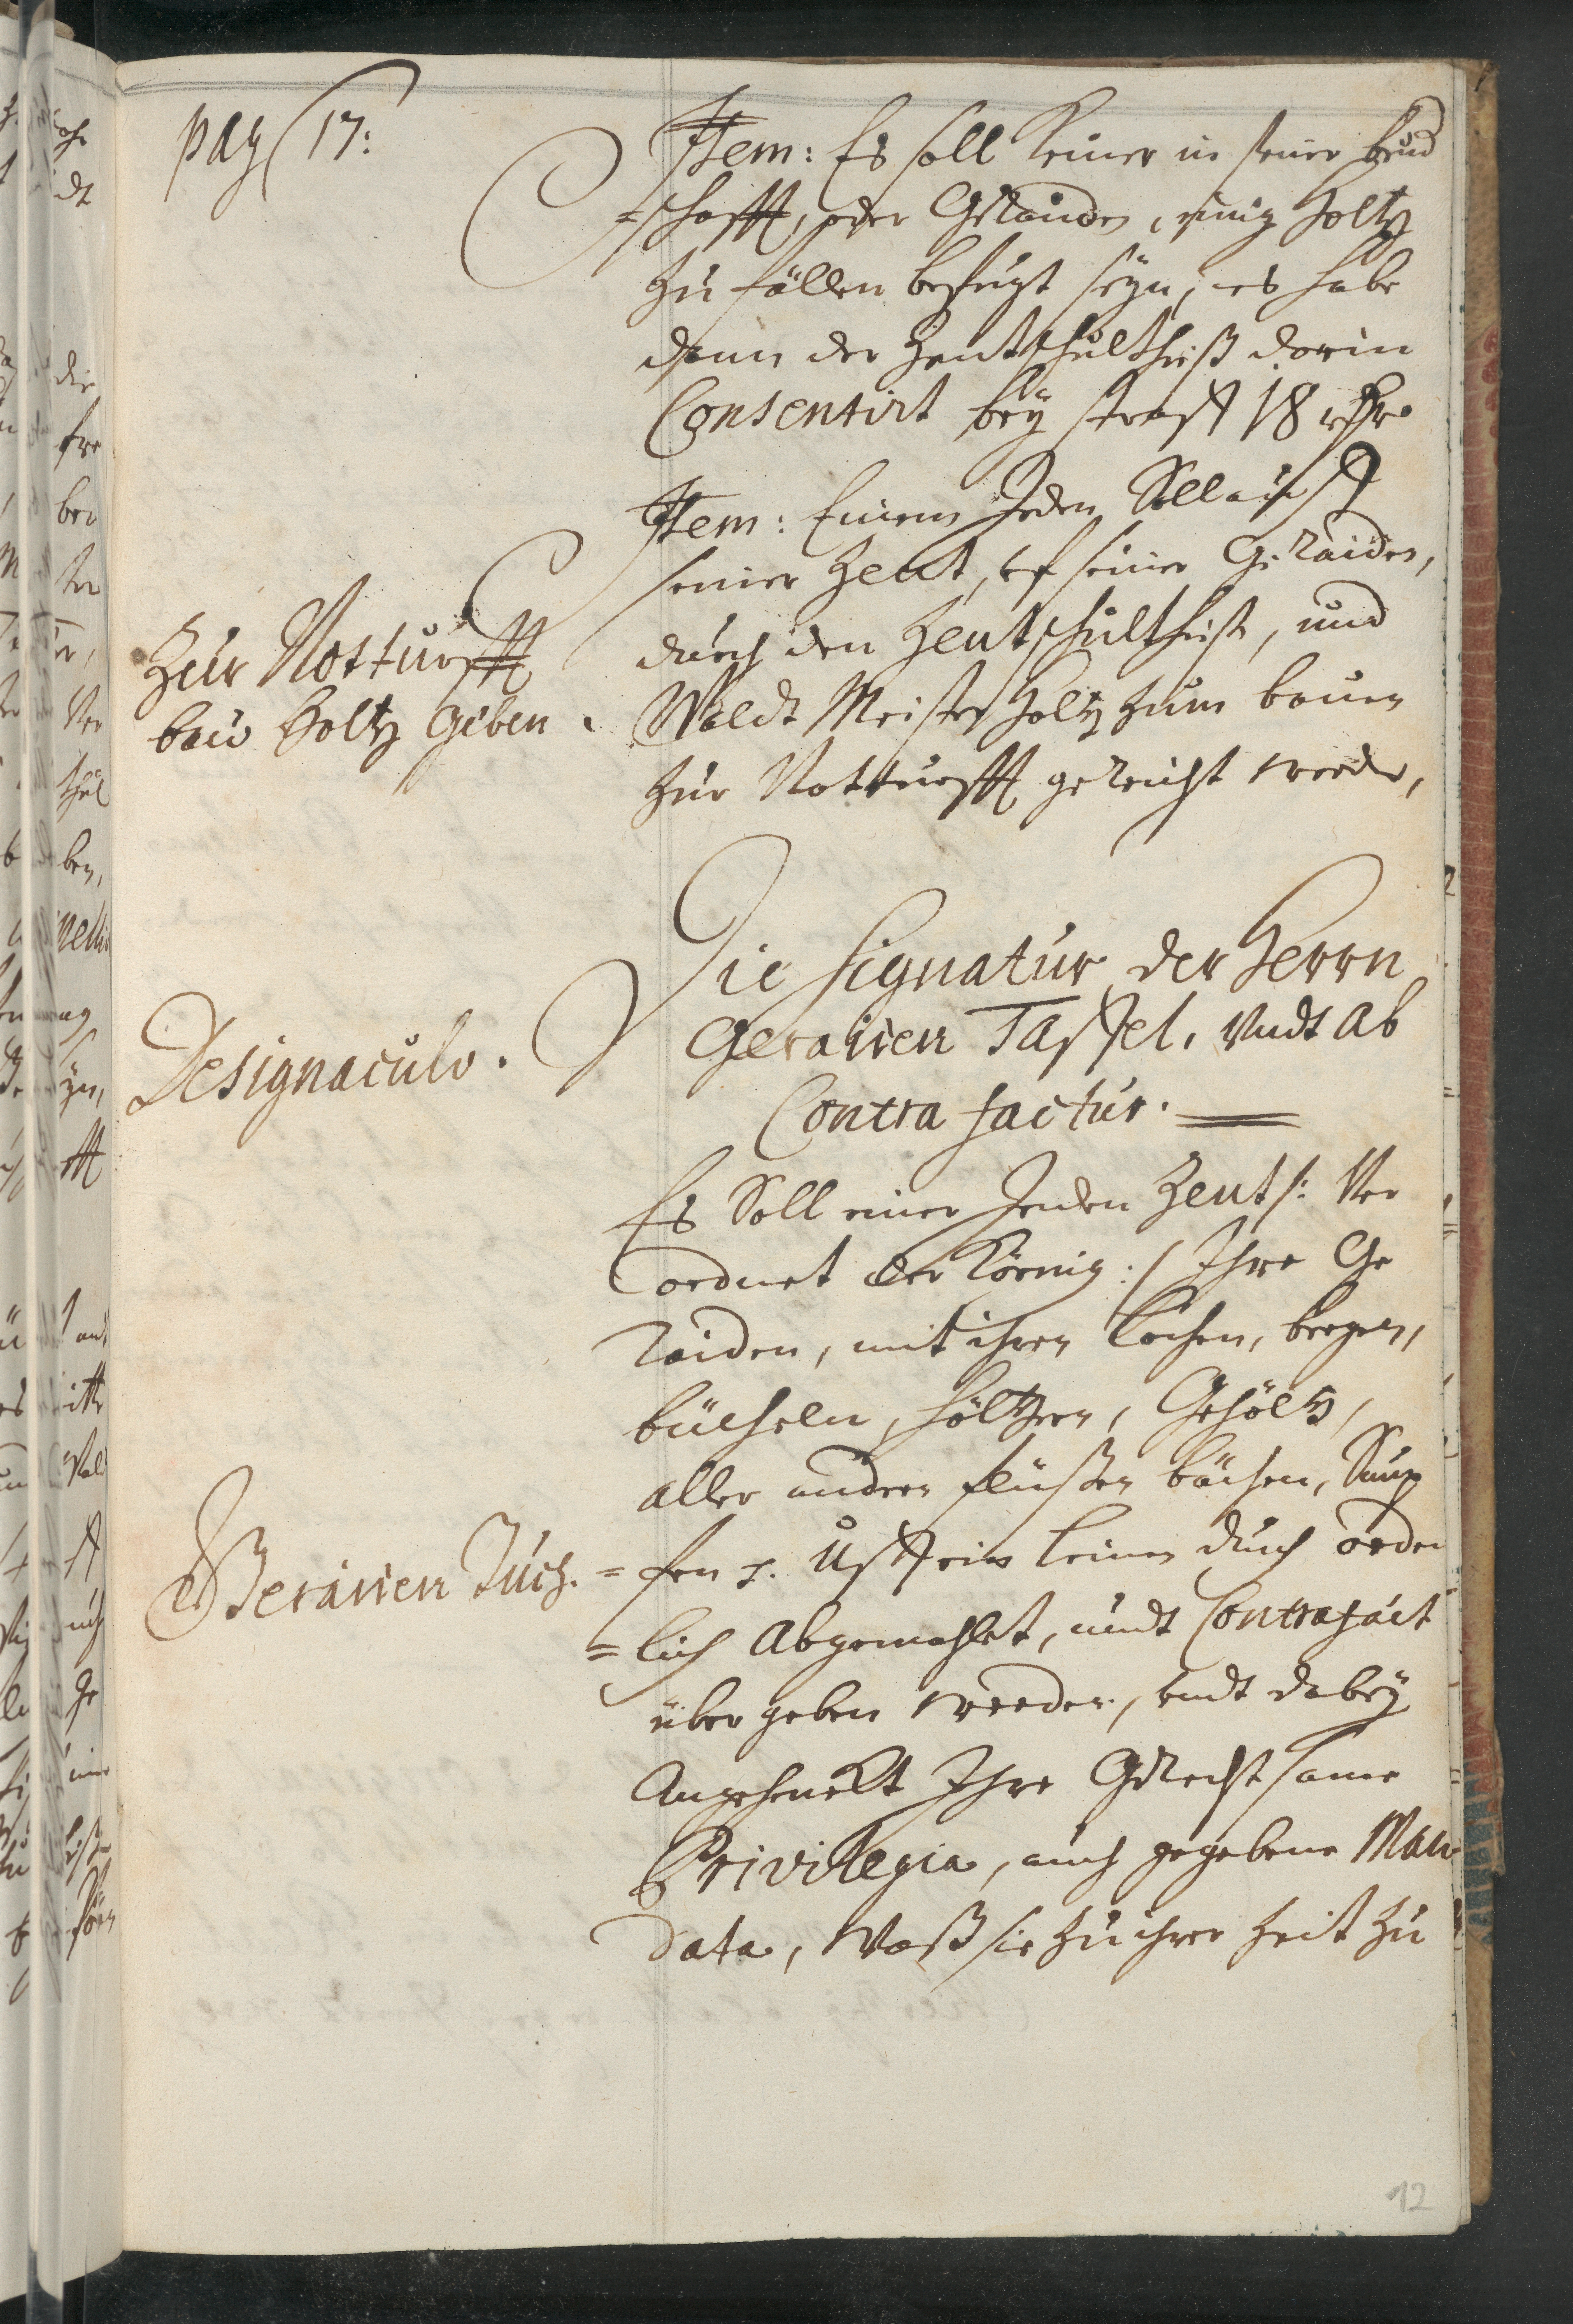 pag 17:
Item: Es soll keiner in seiner beud
=schafft, oder Geraiden, einig holtz
zu fällen befugt seyn, es habe
dann der Zentschultheiß darin
Consentirt bey straff 18
Item: Einem Jeden Soll auß
seiner Zent, uf seiner Geraiden,
durch den Zentschultheiß, und
Waldt Meister holtz zum bauen
zur Notturfft gereicht werden,
Zur Notturfft
bau Holtz geben.
Die Signatur der Herrn
Geraiien Taffel, Vndt Ab
Contra factur.
Designaculo.
Es Soll einer Jeden Zent /: Ver
ordnet der König :/ Ihre Ge
raiden, mit ihren lochen, bergen,
bücheln, höltzern, Gehöltz,
aller anderen flüßen bächen, Sümp
=fen ein leinen duch orden
=lich Abgemahlet, undt Contrafait
über geben werden, undt dabey
Angehenckt Ihre Gerechtsame
Privilegia, auch gegebene Man
data, Waß sie zu ihrer Zeit zu
Geraiien Tuch.
12